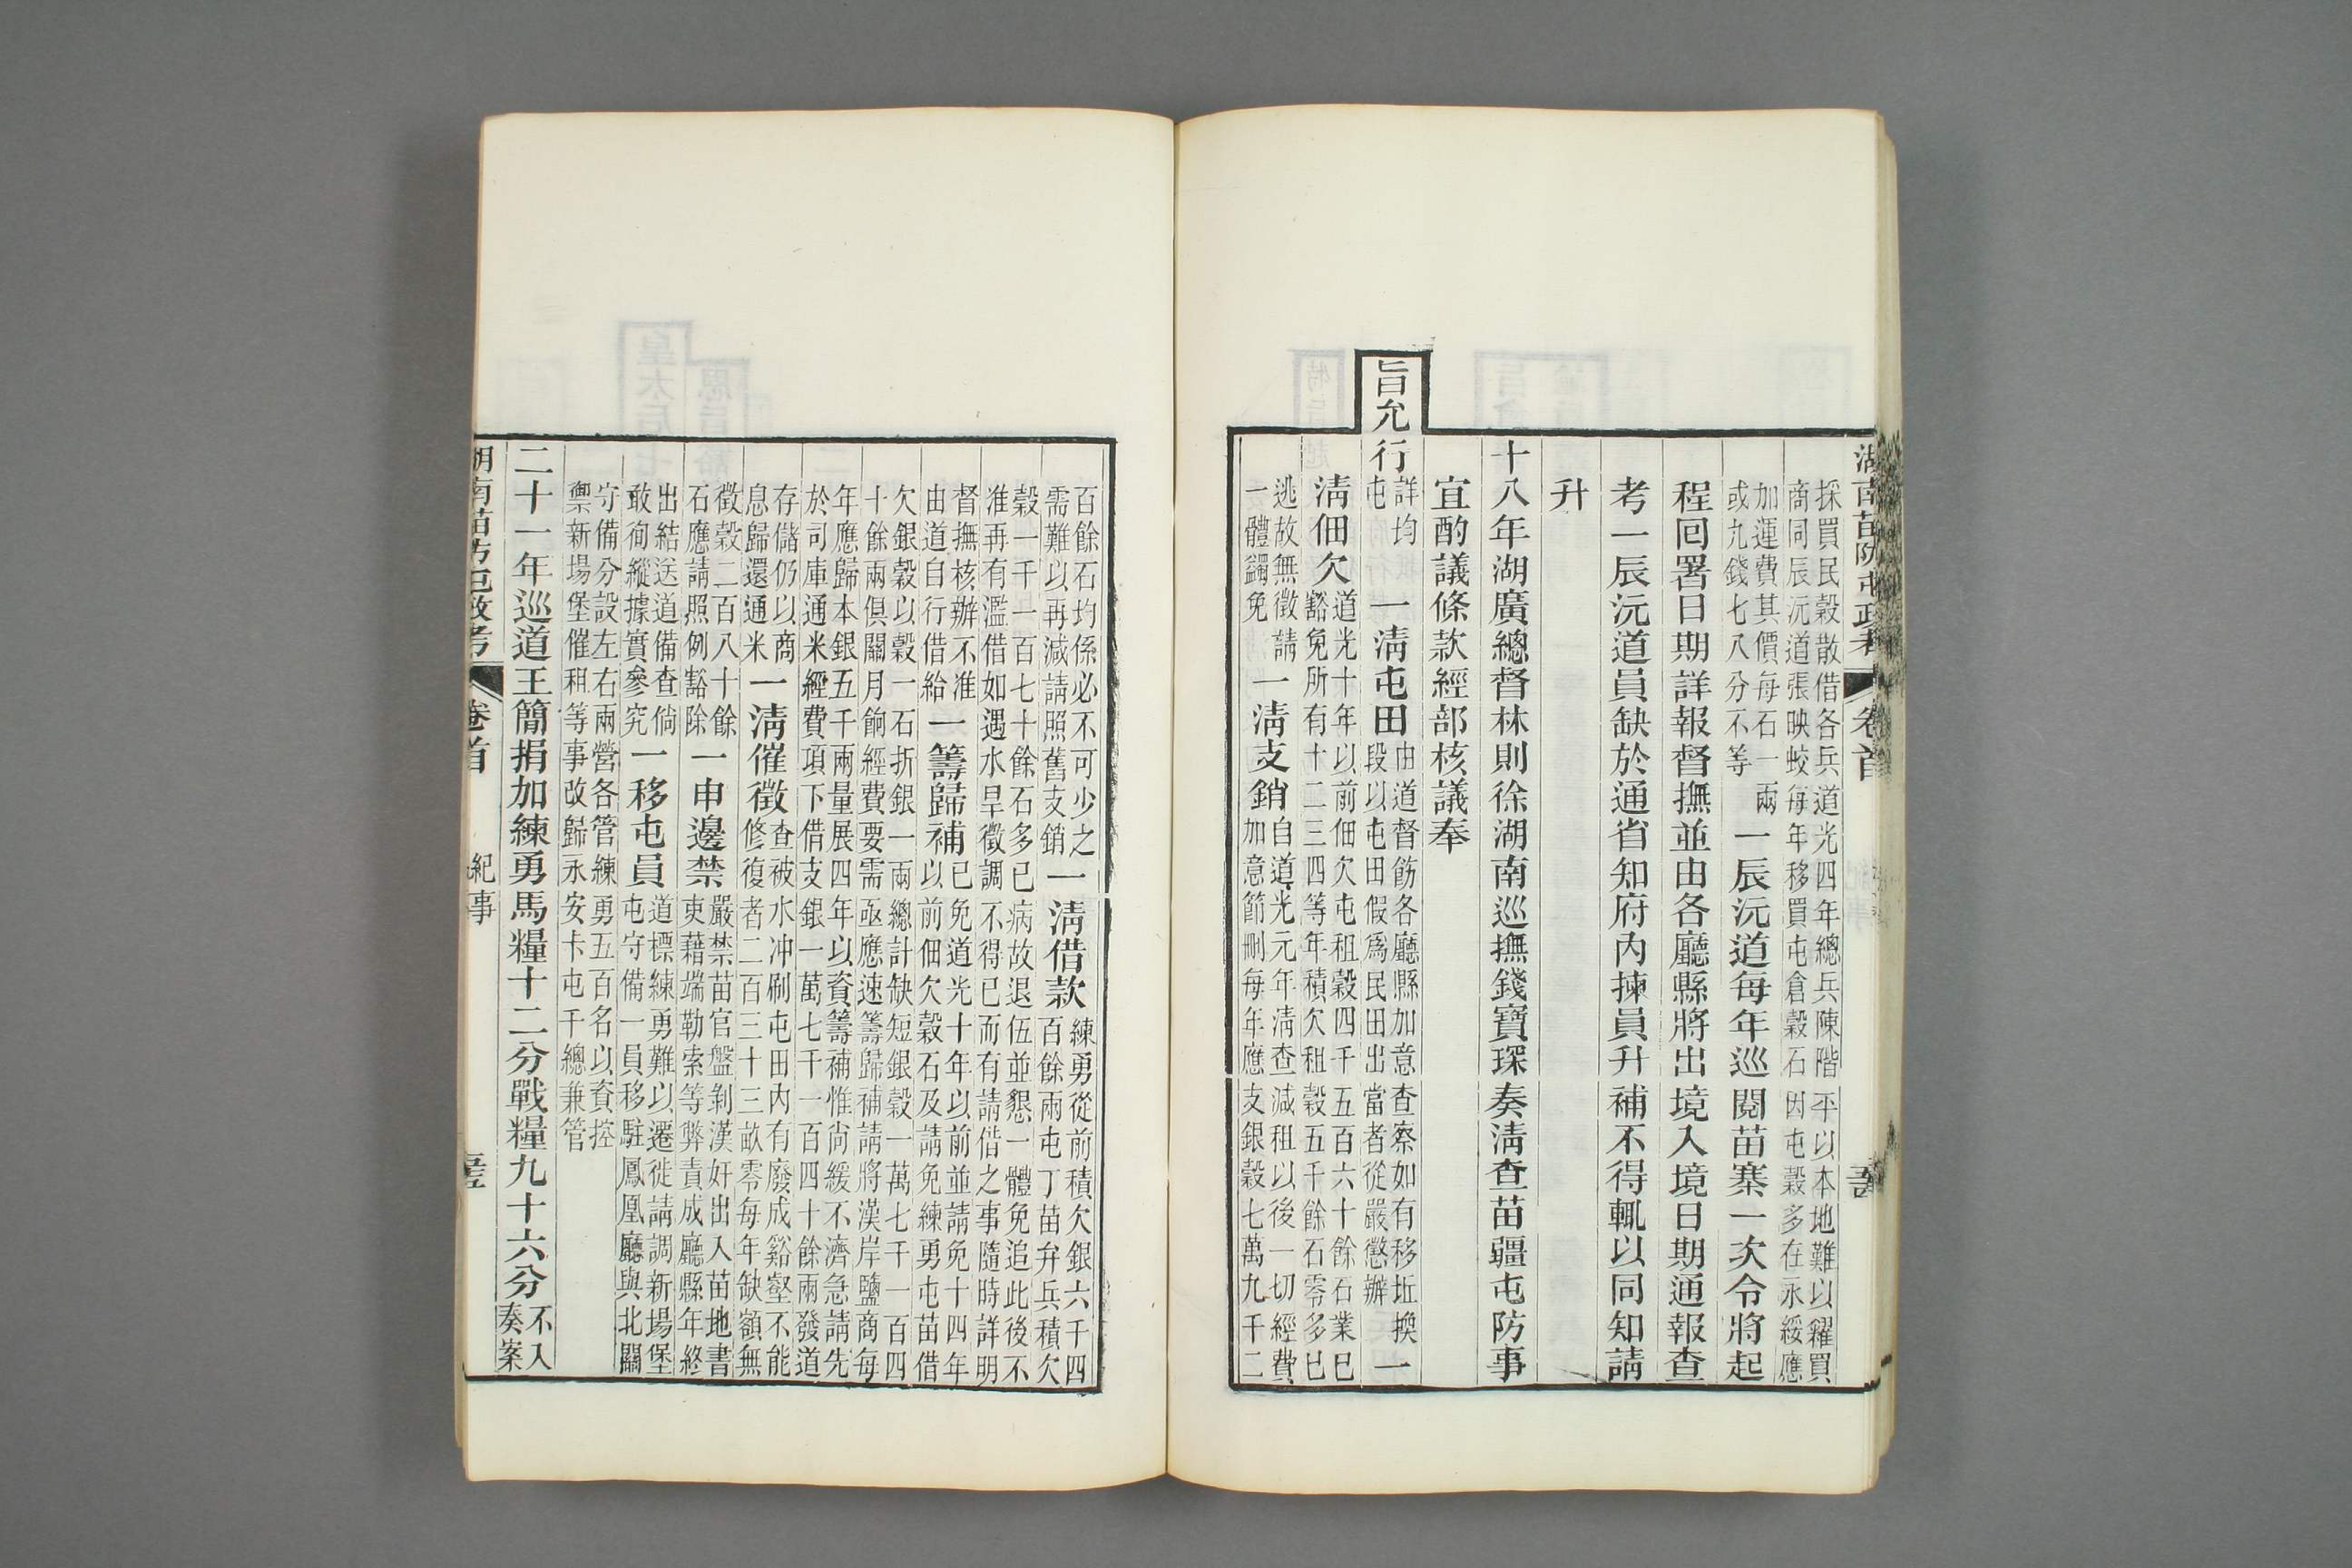 湖南苗防屯政考 卷首
採買民穀散借各兵道光四年總兵陳階平以本地難以糴買
商同辰沅道張映蛟每年移買屯倉穀石因屯穀多在永綏應
加運費其價每石一兩
或九錢七八分不等
一辰沅道每年巡閱苗寨一次令將起
程回署日期詳報督撫並由各廳縣將出境入境日期通報查
考一辰沅道員缺於通省知府內揀員升補不得輒以同知請
升
十八年湖廣總督林則徐湖南巡撫錢寶琛奏淸查苗疆屯防事
宜酌議條款經部核議奉
旨允行
詳均
屯
一淸屯田
由道督飭各廳縣加意查察如有移坵換
段以屯田假爲民田出當者從嚴懲辦
一
淸佃欠
道光十年以前佃欠屯租穀四千五百六十餘石業已
豁免所有十二三四等年積欠租穀五千餘石零多已
逃故無徵請
一體蠲免
一淸支銷
自道光元年淸查減租以後一切經費
加意節刪每年應支銀穀七萬九千二
百餘石均係必不可少之
需難以再減請照舊支銷
一淸借款
練勇從前積欠銀六千四
百餘兩屯丁苗弁兵積欠
穀一千一百七十餘石多已病故退伍並懇一體免追此後不
准再有濫借如遇水旱徵調不得已而有請借之事隨時詳明
督撫核辦不准
由道自行借給
一籌歸補
已免道光十年以前並請免十四年
以前佃欠穀石及請免練勇屯苗借
欠銀穀以穀一石折銀一兩總計缺短銀穀一萬七千一百四
十餘兩俱關月餉經費要需亟應速籌歸補請將漢岸鹽商每
年應歸本銀五千兩量展四年以資籌補惟尚緩不濟急請先
於司庫通米經費項下借支銀一萬七千一百四十餘兩發道
存儲仍以商
息歸還通米
一淸催徵
查被水冲刷屯田內有廢成谿壑不能
修復者二百三十三畝零每年缺額無
徵穀二百八十餘
石應請照例豁除
一申邊禁
嚴禁苗官盤剝漢奸出入苗地書
吏藉端勒索等弊責成廳縣年終
出結送道備查倘
敢徇縱據實參究
一移屯員
道標練勇難以遷徙請調新場堡
屯守備一員移駐鳳凰廳與北關
守備分設左右兩營各管練勇五百名以資控
禦新場堡催租等事改歸永安卡屯千總兼管
二十一年巡道王簡捐加練勇馬糧十二分戰糧九十六分
不入
奏案
湖南苗防屯政考 卷首 紀事